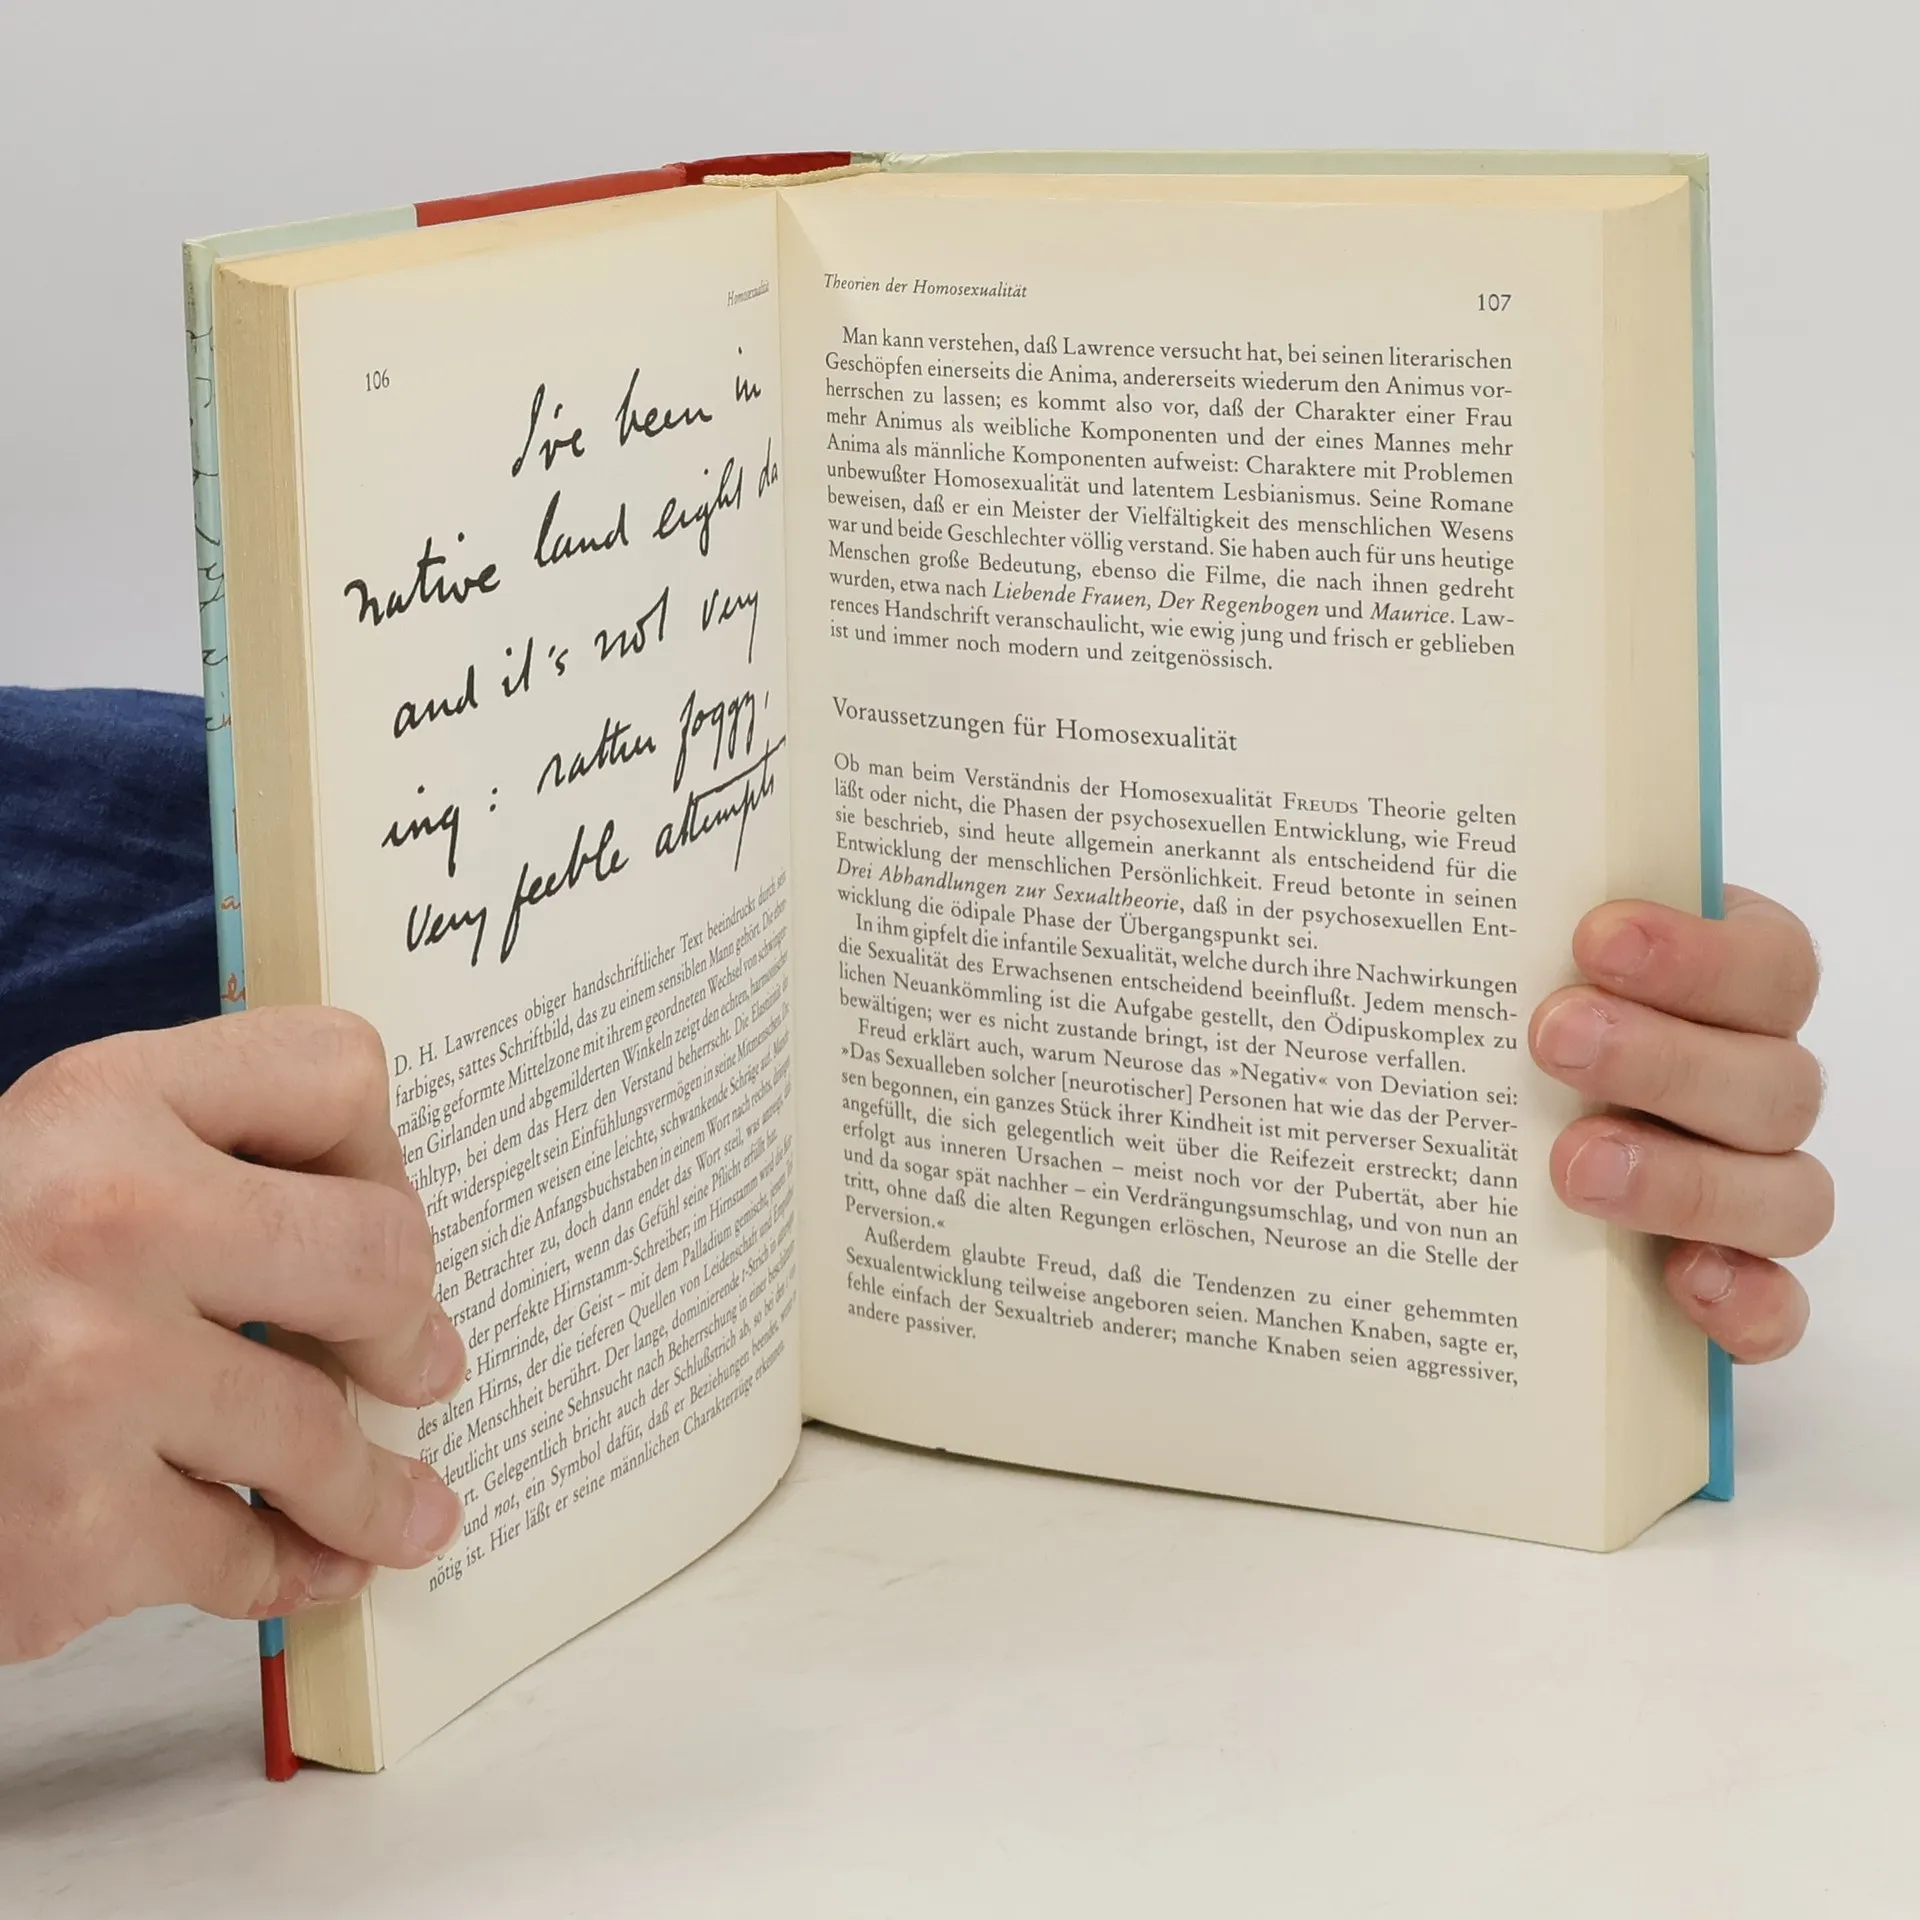 106
Homosexualität
I've been in
native land eight da
and it's not very
ing: rather foggy,
very feeble attempts
D. H. Lawrences obiger handschriftlicher Text beeindruckt durch sein
farbiges, sattes Schriftbild, das zu einem sensiblen Mann gehört. Die eben-
mäßig geformte Mittelzone mit ihrem geordneten Wechsel von schwingen-
den Girlanden und abgemilderten Winkeln zeigt den echten, harmonischen
ühltyp, bei dem das Herz den Verstand beherrscht. Die Elastizität der
rift widerspiegelt sein Einfühlungsvermögen in seine Mitmenschen. Die
hstabenformen weisen eine leichte, schwankende Schräge auf. Manch
neigen sich die Anfangsbuchstaben in einem Wort nach rechts, drängen
den Betrachter zu, doch dann endet das Wort steil, was anzeigt, daß
erstand dominiert, wenn das Gefühl seine Pflicht erfüllt hat.
der perfekte Hirnstamm-Schreiber; im Hirnstamm wird die
e Hirnrinde, der Geist – mit dem Palladium gemischt, jenem Teil
des alten Hirns, der die tieferen Quellen von Leidenschaft und
für die Menschheit berührt. Der lange, dominierende t-Strich in attempts
deutlicht uns seine Sehnsucht nach Beherrschung in einer bestimmten
rt. Gelegentlich bricht auch der Schlußstrich ab, so bei den
und not, ein Symbol dafür, daß er Beziehungen beendet, wenn
nötig ist. Hier läßt er seine männlichen Charakterzüge erkennen.
Theorien der Homosexualität
107
Man kann verstehen, daß Lawrence versucht hat, bei seinen literarischen
Geschöpfen einerseits die Anima, andererseits wiederum den Animus vor-
herrschen zu lassen; es kommt also vor, daß der Charakter einer Frau
mehr Animus als weibliche Komponenten und der eines Mannes mehr
Anima als männliche Komponenten aufweist: Charaktere mit Problemen
unbewußter Homosexualität und latentem Lesbianismus. Seine Romane
beweisen, daß er ein Meister der Vielfältigkeit des menschlichen Wesens
war und beide Geschlechter völlig verstand. Sie haben auch für uns heutige
Menschen große Bedeutung, ebenso die Filme, die nach ihnen gedreht
wurden, etwa nach Liebende Frauen, Der Regenbogen und Maurice. Law-
rences Handschrift veranschaulicht, wie ewig jung und frisch er geblieben
ist und immer noch modern und zeitgenössisch.
Voraussetzungen für Homosexualität
Ob man beim Verständnis der Homosexualität FREUDS Theorie gelten
läßt oder nicht, die Phasen der psychosexuellen Entwicklung, wie Freud
sie beschrieb, sind heute allgemein anerkannt als entscheidend für die
Entwicklung der menschlichen Persönlichkeit. Freud betonte in seinen
Drei Abhandlungen zur Sexualtheorie, daß in der psychosexuellen Ent-
wicklung die ödipale Phase der Übergangspunkt sei.
In ihm gipfelt die infantile Sexualität, welche durch ihre Nachwirkungen
die Sexualität des Erwachsenen entscheidend beeinflußt. Jedem mensch-
lichen Neuankömmling ist die Aufgabe gestellt, den Ödipuskomplex zu
bewältigen; wer es nicht zustande bringt, ist der Neurose verfallen.
Freud erklärt auch, warum Neurose das »Negativ« von Deviation sei:
»Das Sexualleben solcher [neurotischer] Personen hat wie das der Perver-
sen begonnen, ein ganzes Stück ihrer Kindheit ist mit perverser Sexualität
angefüllt, die sich gelegentlich weit über die Reifezeit erstreckt; dann
erfolgt aus inneren Ursachen – meist noch vor der Pubertät, aber hie
und da sogar spät nachher – ein Verdrängungsumschlag, und von nun an
tritt, ohne daß die alten Regungen erlöschen, Neurose an die Stelle der
Perversion.«
Außerdem glaubte Freud, daß die Tendenzen zu einer gehemmten
Sexualentwicklung teilweise angeboren seien. Manchen Knaben, sagte er,
fehle einfach der Sexualtrieb anderer; manche Knaben seien aggressiver,
andere passiver.